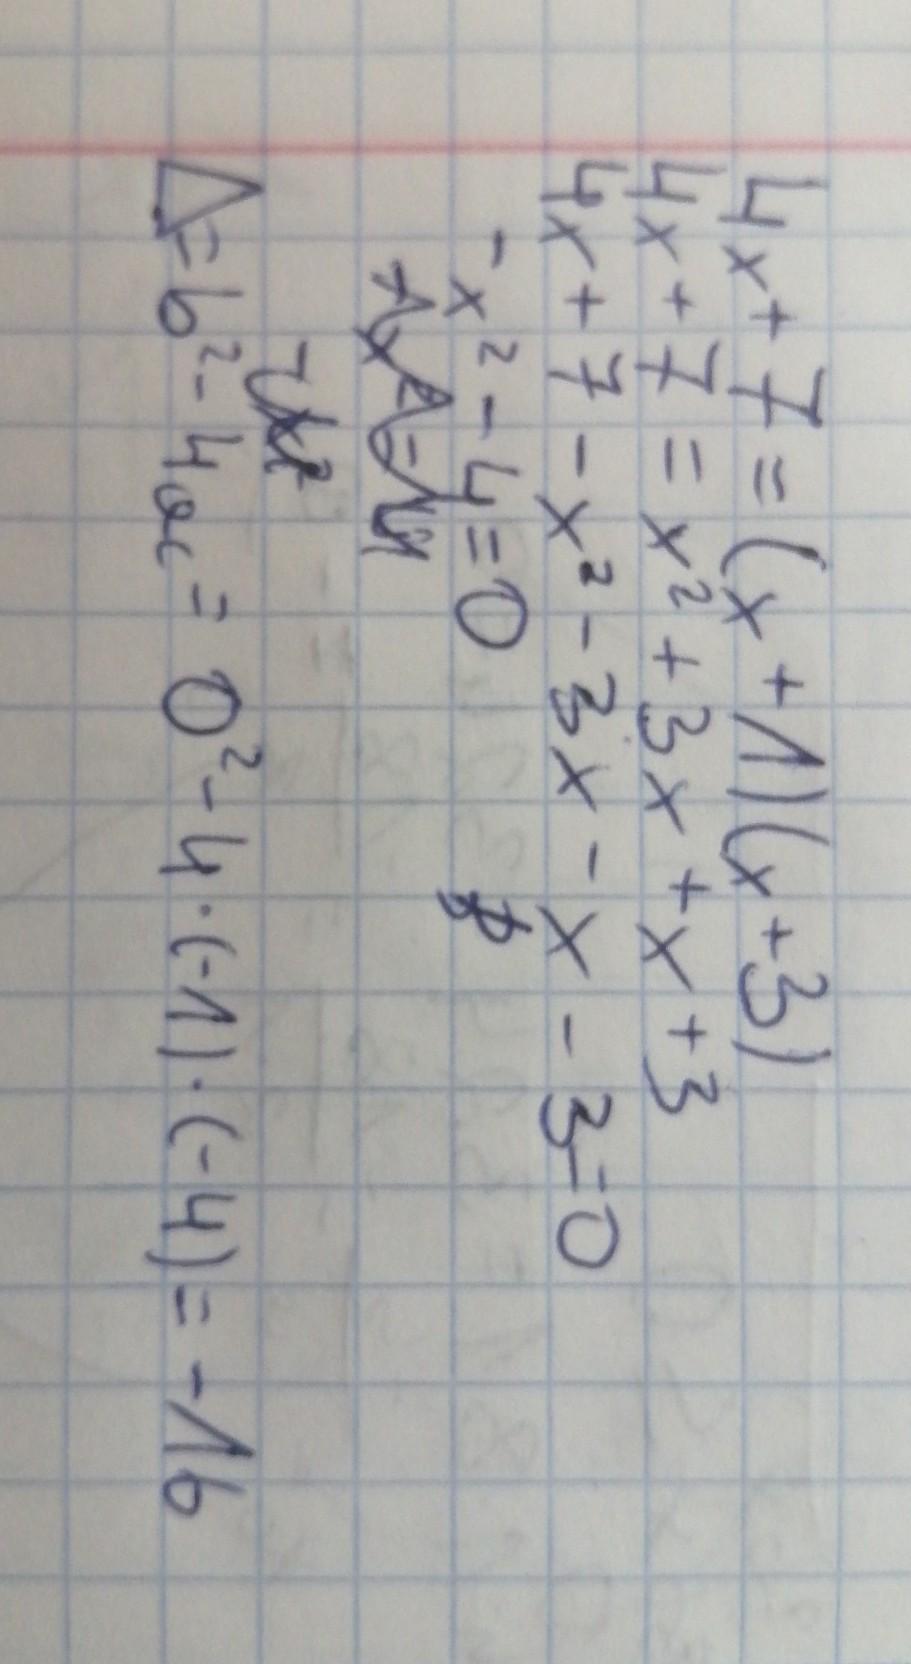 4x + 7 = (x + 1)(x + 3)
4x + 7 = x² + 3x + x + 3
4x + 7 - x² - 3x - x - 3 = 0
-x² - 4 = 0
Δ = b² - 4ac = 0² - 4 · (-1) · (-4) = -16